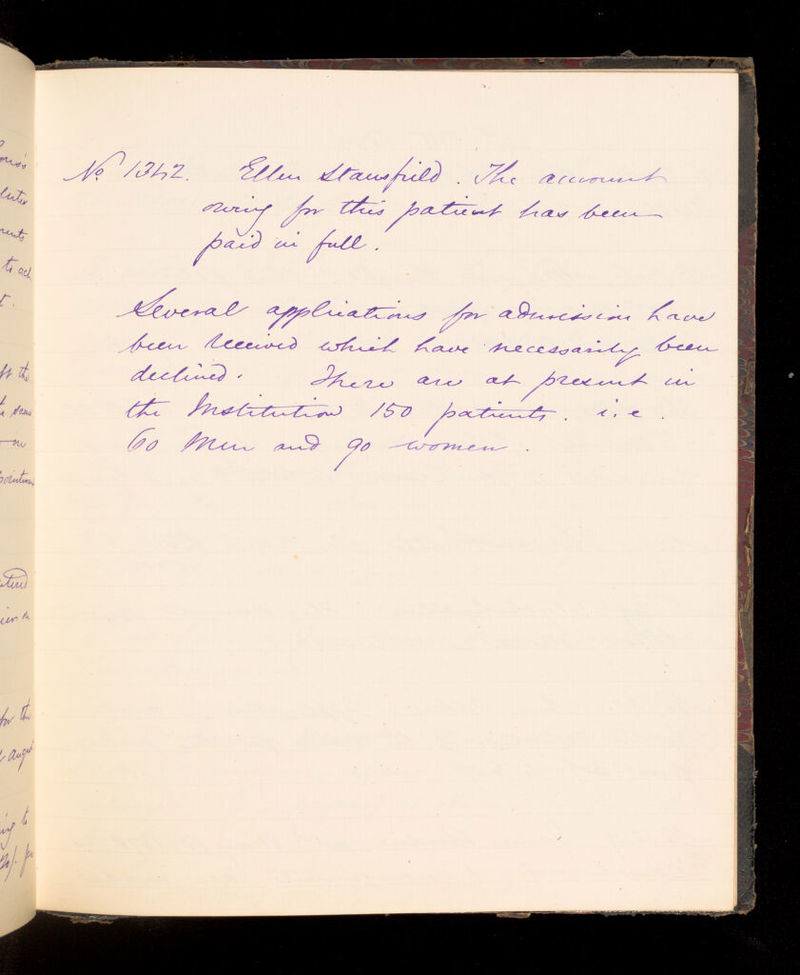 No 1342. Ellen Stansfield. The account
owing for this patient has been
paid in full.
Several applications for admission have
been received which have necessarily been
declined. There are at present in
the Institution 150 patients. i.e.
60 Men and 90 women.